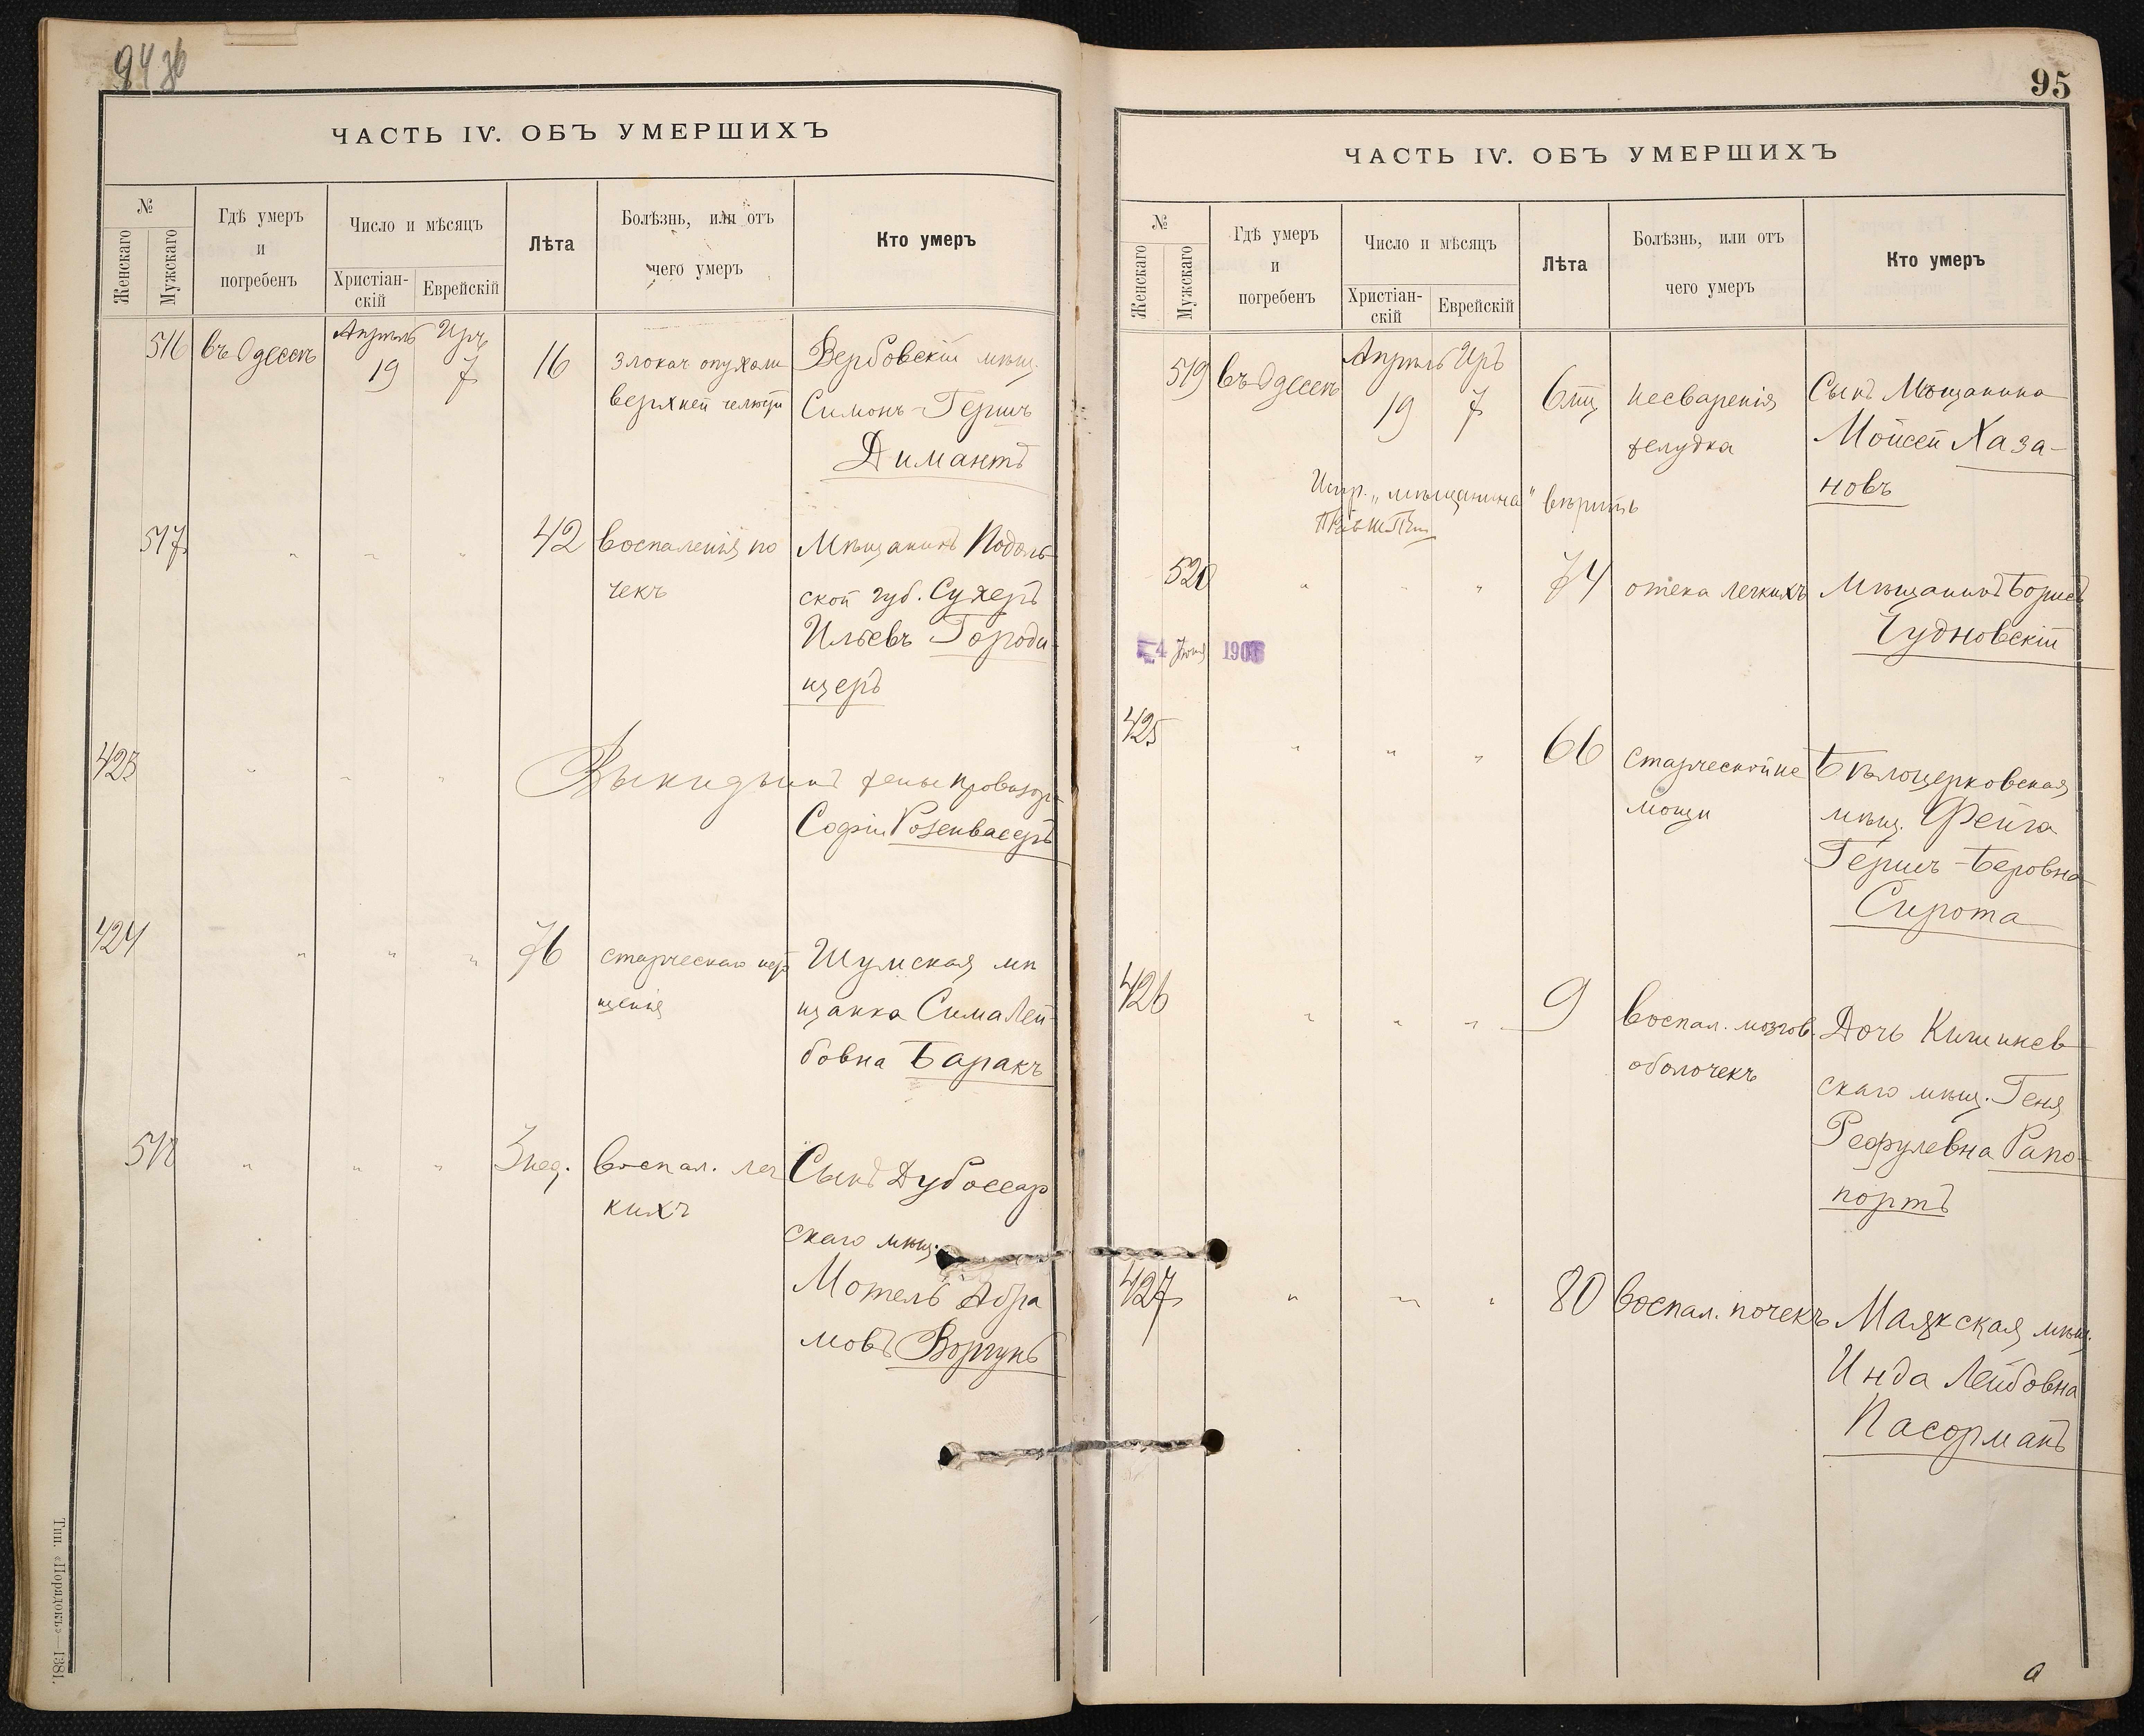 94 об
ЧАСТЬ IV. ОБЪ УМЕРШИХЪ
№
Женскаго
Мужскаго
Гдѣ умеръ
и
погребенъ
Число и мѣсяцъ
Христіан-
скій
Еврейскій
Лѣта
Болѣзнь, или отъ
чего умеръ
Кто умеръ
516 въ Одессѣ Апрѣль 19 Иръ 7 16 злокач опухоли Вербовскій мѣщ.
верхней челюсти Симонъ-Гершъ
Димантъ
517 " " " 42 воспаленія по Мѣщанинъ Подоль-
чекъ ской губ. Сухеръ
Ильевъ Городи-
щеръ
423 " " " Выкидышъ жены провизора
Софіи Розенвасеръ
424 " " " 76 старческаго Шумская мѣ
щенія щанка Сима Лей-
бовна Баракъ
518 " " " 3 нед. воспал. лег Сынъ Дубоссар
кихъ скаго мѣщ.
Мотель Абра
мовъ Воргунъ
Тип. «Порядокъ»—1381.
95
ЧАСТЬ IV. ОБЪ УМЕРШИХЪ
№
Женскаго
Мужскаго
Гдѣ умеръ
и
погребенъ
Число и мѣсяцъ
Христіан-
скій
Еврейскій
Лѣта
Болѣзнь, или отъ
чего умеръ
Кто умеръ
519 въ Одессѣ Апрѣль 19 Иръ 7 6 мц несваренія Сынъ Мѣщанина
желудка Мойсей Хаза-
новъ
Испр. „мѣщанина" вѣрить
520 " " " 74 отека легкихъ Мѣщанинъ Борисъ
Чудновскій
4 Іюня 190
425 " " " 66 старческой не Бѣлоцерковская
мощи мѣщ. Фейга
Гершъ-Беровна
Сирота
426 " " " 9 воспал. мозгов. Дочь Кишинев
оболочекъ скаго мѣщ. Геня
Рефулевна Рапо-
портъ
427 " " " 80 воспал. почекъ Маякская мѣщ.
Инда Лейбовна
Пасорманъ